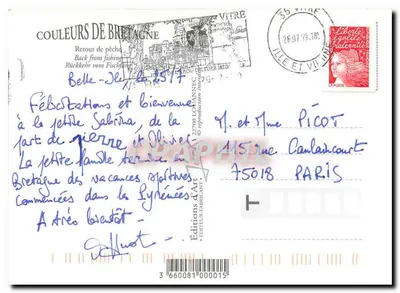 COULEURS DE BRETAGNE
Retour de pêche
Back from fishing
Rückkehr vom Fischfang
VITRE
35 VITRE
26.07.99.18
ILLE ET VILAINE
Liberté
égalité
fraternité
Belle-Ile, le 25/7
Félicitations et bienvenue
à la petite Sabrina, de la
part de Pierre et Olivier
La petite famille termine en
Bretagne des vacances sportives
commencées dans les Pyrénées
A très bientôt -
M. et Mme PICOT
115 rue Caulaincourt
75018 PARIS
Editions d'Art
EDITEUR-FABRICANT
22700 LOUANNEC
© reproduction interdite
T
3 660081 000015